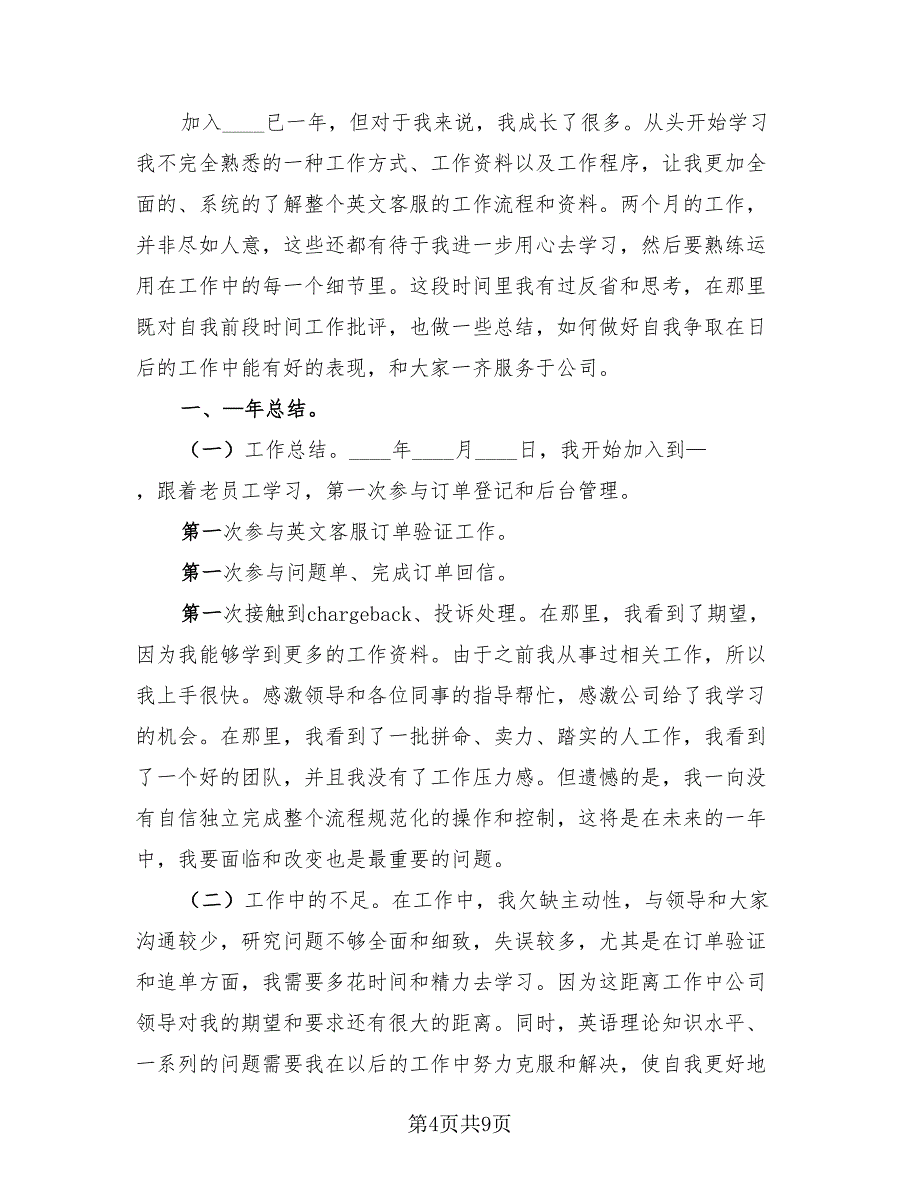 加入____已一年，但对于我来说，我成长了很多。从头开始学习
我不完全熟悉的一种工作方式、工作资料以及工作程序，让我更加全
面的、系统的了解整个英文客服的工作流程和资料。两个月的工作，
并非尽如人意，这些还都有待于我进一步用心去学习，然后要熟练运
用在工作中的每一个细节里。这段时间里我有过反省和思考，在那里
既对自我前段时间工作批评，也做一些总结，如何做好自我争取在日
后的工作中能有好的表现，和大家一齐服务于公司。
一、—年总结。
（一）工作总结。____年____月____日，我开始加入到—
，跟着老员工学习，第一次参与订单登记和后台管理。
第一次参与英文客服订单验证工作。
第一次参与问题单、完成订单回信。
第一次接触到chargeback、投诉处理。在那里，我看到了期望，
因为我能够学到更多的工作资料。由于之前我从事过相关工作，所以
我上手很快。感激领导和各位同事的指导帮忙，感激公司给了我学习
的机会。在那里，我看到了一批拼命、卖力、踏实的人工作，我看到
了一个好的团队，并且我没有了工作压力感。但遗憾的是，我一向没
有自信独立完成整个流程规范化的操作和控制，这将是在未来的一年
中，我要面临和改变也是最重要的问题。
（二）工作中的不足。在工作中，我欠缺主动性，与领导和大家
沟通较少，研究问题不够全面和细致，失误较多，尤其是在订单验证
和追单方面，我需要多花时间和精力去学习。因为这距离工作中公司
领导对我的期望和要求还有很大的距离。同时，英语理论知识水平、
一系列的问题需要我在以后的工作中努力克服和解决，使自我更好地
第4页共9页